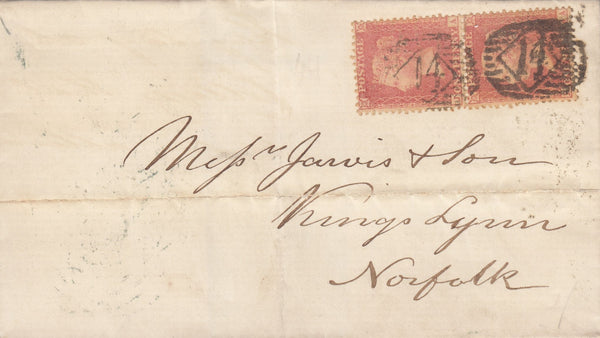 POSTAGE
14
14
Messrs Jarvis & Son
Kings Lynn
Norfolk